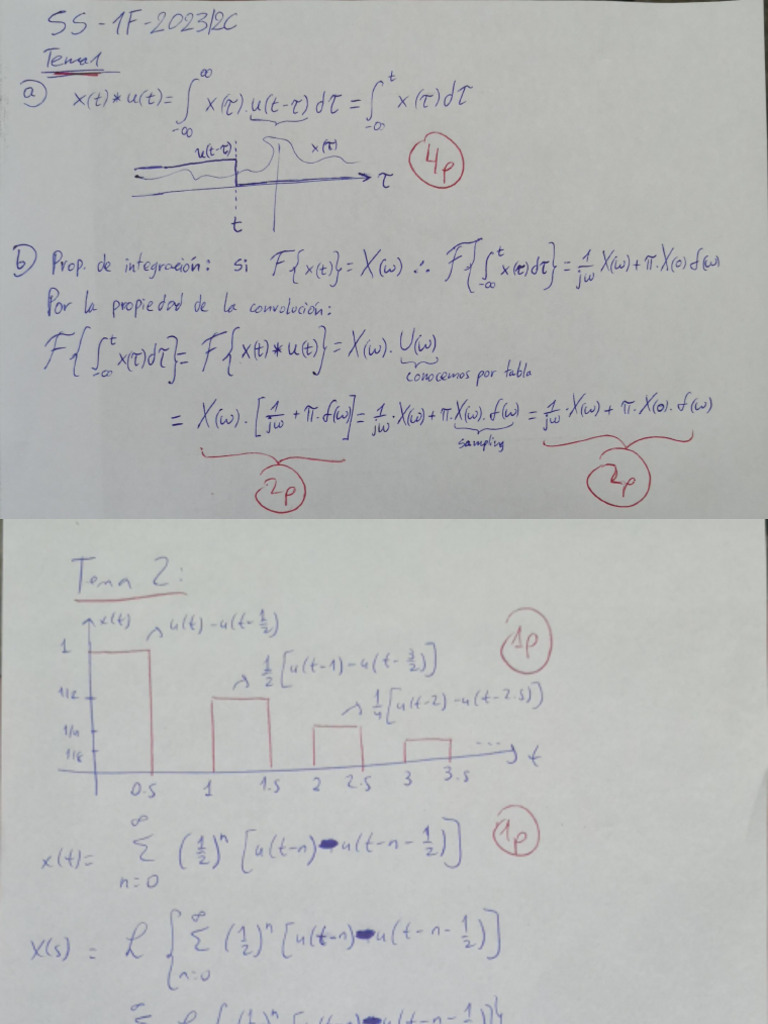 SS-1F-2023/2C
Tema 1
a) x(t)*u(t)= ∫_{-∞}^{∞} x(τ).u(t-τ) dτ = ∫_{-∞}^{t} x(τ)dτ
u(t-τ) x(τ) 4p
τ
t
b) Prop. de integración: si F{x(t)}=X(ω) ∴ F{∫_{-∞}^{t} x(τ)dτ}=1/jω X(ω)+π.X(0)δ(ω)
Por la propiedad de la convolución:
F{∫_{-∞}^{t} x(τ)dτ}= F{x(t)*u(t)}=X(ω).U(ω)
conocemos por tabla
= X(ω).[1/jω + π.δ(ω)]=1/jω.X(ω)+π.X(ω).δ(ω) = 1/jω.X(ω)+π.X(0).δ(ω)
sampling
2p 2p
Tema 2:
x(t) u(t)-u(t-1/2) 1p
1 1/2[u(t-1)-u(t-3/2)]
1/2 1/4[u(t-2)-u(t-2.5)]
1/4
1/8 ... t
0.5 1 1.5 2 2.5 3 3.5
x(t)= ∑_{n=0}^{∞} (1/2)^n [u(t-n)-u(t-n-1/2)] 1p
X(s) = L{∑_{n=0}^{∞} (1/2)^n [u(t-n)-u(t-n-1/2)]